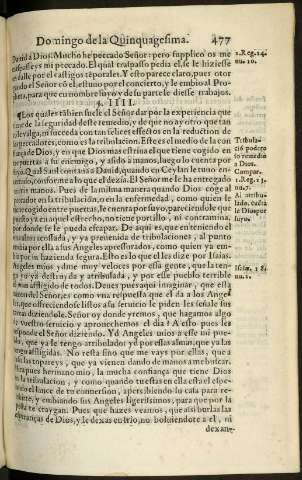 Domingo de la Quinquagesima. 477
David a Dios: Mucho he peccado Señor: pero suplico os me
ys mi peccado. El qual traspasso pedia el, se le hiziesse
por el castigos tēporales. Y esto parece claro, pues otor
gando el Señor cō el, estuuo por el concierto, y le embio al Pro-
pheta, para que en nombre suyo y de su parte diesse trabajos.
§. IIII.
Los quales tābien suele el Señor dar por la experiencia que
tiene de la seguridad deste remedio, y de que no ay otro que tan
valga, ni suceda con tan felices effectos en la reduction de
los peccadores, como es la tribulacion. Este es el medio de la con
fiança de Dios, y en que Dios mas estriua el que tiene cogido en
tre puertas a su enemigo, y asido à manos, luego lo cuenta por
suyo. Qual Saul contaua a David, quando en Ceylan le tuuo en-
cerrado, conforme a lo que el dezia. El Señor me le ha entregado
en manos. Pues de la misma manera quando Dios coge al
peccador en la tribulacion, o en la enfermedad, como quien le
tiene cogido entre puertas, le cuenta por suyo, pareciendole que
puesto ya en aquel estrecho, no tiene portillo, ni contramina,
por donde se le pueda escapar. De aqui es, que en teniendo el
alma encerrada, y ya premiada de tribulaciones, al punto
embia por ella a sus Angeles apressurados, como quien ya em-
bia por su hazienda segura. Esto es lo que el les dize por Isaias.
Angeles mios ydme muy veloces por essa gente, que la ten-
go yo ya destruyda y atribulada, y por esse pueblo terrible
mas affligido de todos. Deues pues aqui imaginar, que esta
del Señor, es como vna respuesta que el da a los Angel
que offreciendose listos a su seruicio le piden les señale sus
diziendole. Señor oy donde yremos, que hagamos algo
de vuestro seruicio y aprouechemos el dia? A esto pues les
responde el Señor diziendo. Yd Angeles mios a esse mi pue-
blo, que ya le tengo atribulado yd por essas almas, que ya las
tengo affligidas. No resta sino que me vays por ellas, que a
las topareys, que ya vienen dando de manos a me buscar.
Mira pues hermano mio, la mucha confiança que tiene Dios
en la tribulacion, y como quando tu estas en ella esta el espe-
rando el lance de tu conuersion, apercibiendo su casa para re-
cebirte, y embiando sus Angeles ligerissimos, para que por la
posta te traygan. Pues que hazes veamos, que assi burlas las
esperanças de Dios, y le dexas en frio, no boluiendote a el, ni
dexan-
2. Reg. 24.
nu. 10.
Tribula-
ció podero
so remedio
a Dios.
Compar.
1. Reg. 23.
nu. 7.
Al atribu-
lado cuēta
le Dios por
suyo.
Isai. 18.
nu. 2.